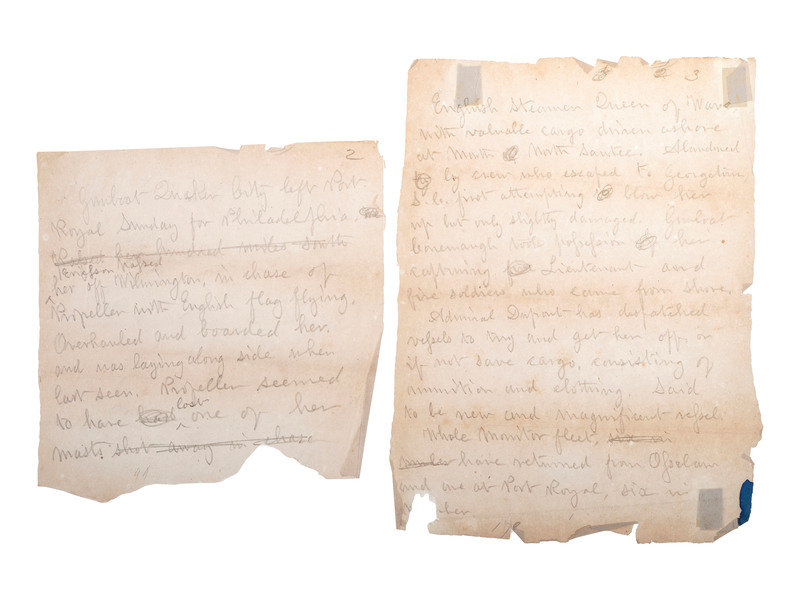 2
Gunboat Quaker City left Port
Royal Sunday for Philadelphia.
two hundred miles south
Ericsson passed
her off Wilmington, in chase of
Propeller with English flag flying.
Overhauled and boarded her.
and was laying along side when
last seen. Propeller seemed
lost
to have had one of her
masts shot away in chase
3
English steamer Queen of Wave
with valuable cargo driven ashore
at Mouth North Santee. Abandoned
by crew who escaped to Georgetown
S.C. first attempting blow her
up but only slightly damaged. Gunboat
Conemaugh took possession her
capturing Lieutenant and
five soldiers who came from shore.
Admiral Dupont has despatched
vessels to try and get her off, or
if not save cargo, consisting of
munition and clothing. Said
to be new and magnificent vessel.
Whole Monitor fleet, six in
number have returned from Ossabaw
and are at Port Royal, six in